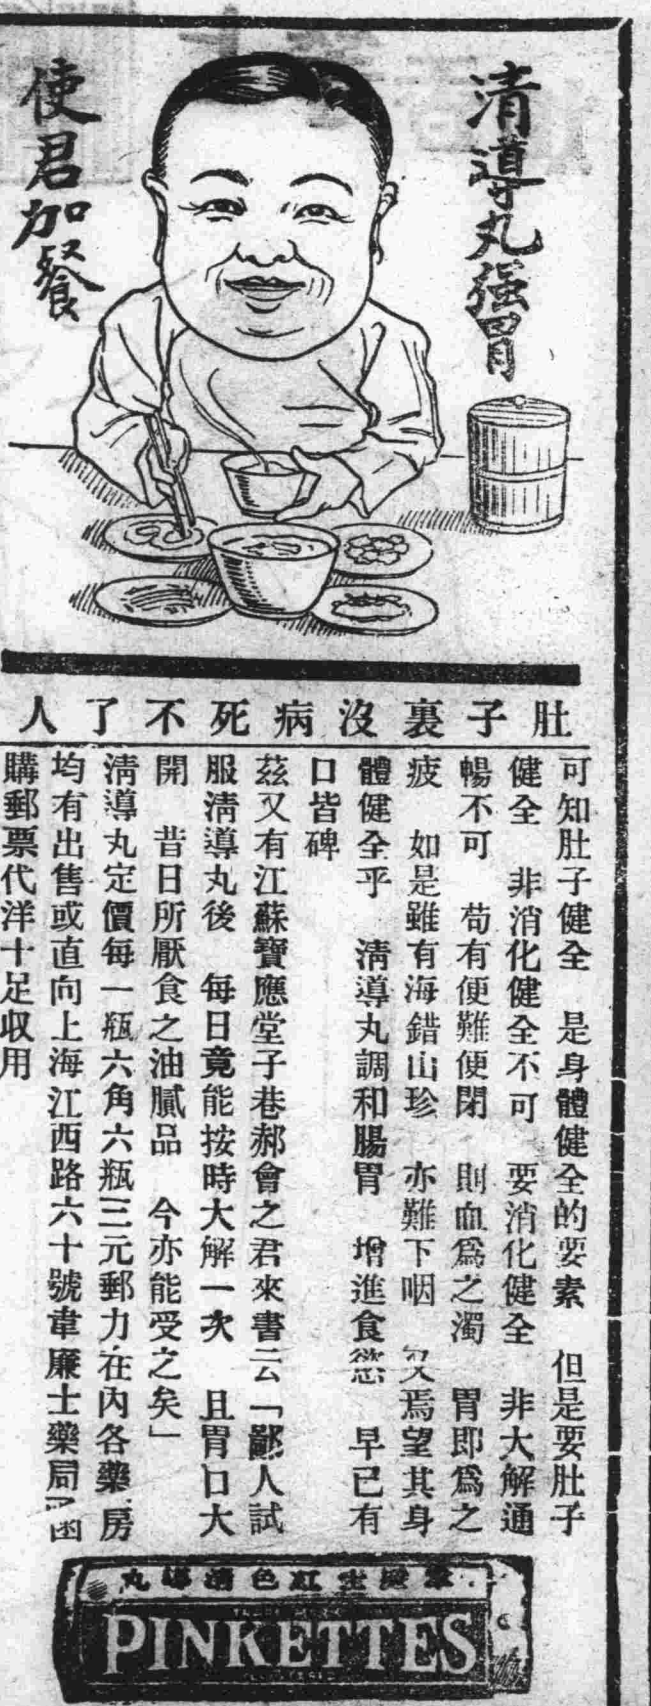 清導丸强胃
使君加餐
肚子裏沒病死不了人
可知肚子健全　是身體健全的要素　但是要肚子
健全　非消化健全不可　要消化健全　非大解通
暢不可　苟有便難便閉　則血爲之濁　胃即爲之
疲　如是雖有海錯山珍　亦難下咽　又焉望其身
體健全乎　淸導丸調和腸胃　增進食慾　早已有
口皆碑
茲又有江蘇寶應堂子巷郝會之君來書云「鄙人試
服淸導丸後　每日竟能按時大解一次　且胃口大
開　昔日所厭食之油膩品　今亦能受之矣」
淸導丸定價每一瓶六角六瓶三元郵力在內各藥房
均有出售或直向上海江西路六十號韋廉士藥局函
購郵票代洋十足收用
韋廉士紅色淸導丸
PINKETTES